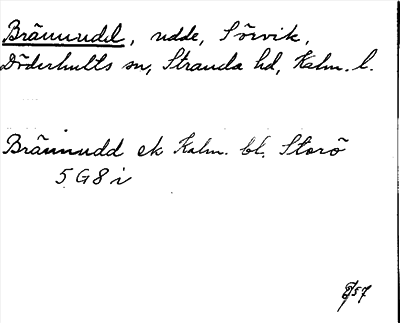 Brännudd, udde, Sörvik,
Döderhults sn, Stranda hd, Kalm. l.
Brännudd ek Kalm. bl. Storö
5 G 8 i
57